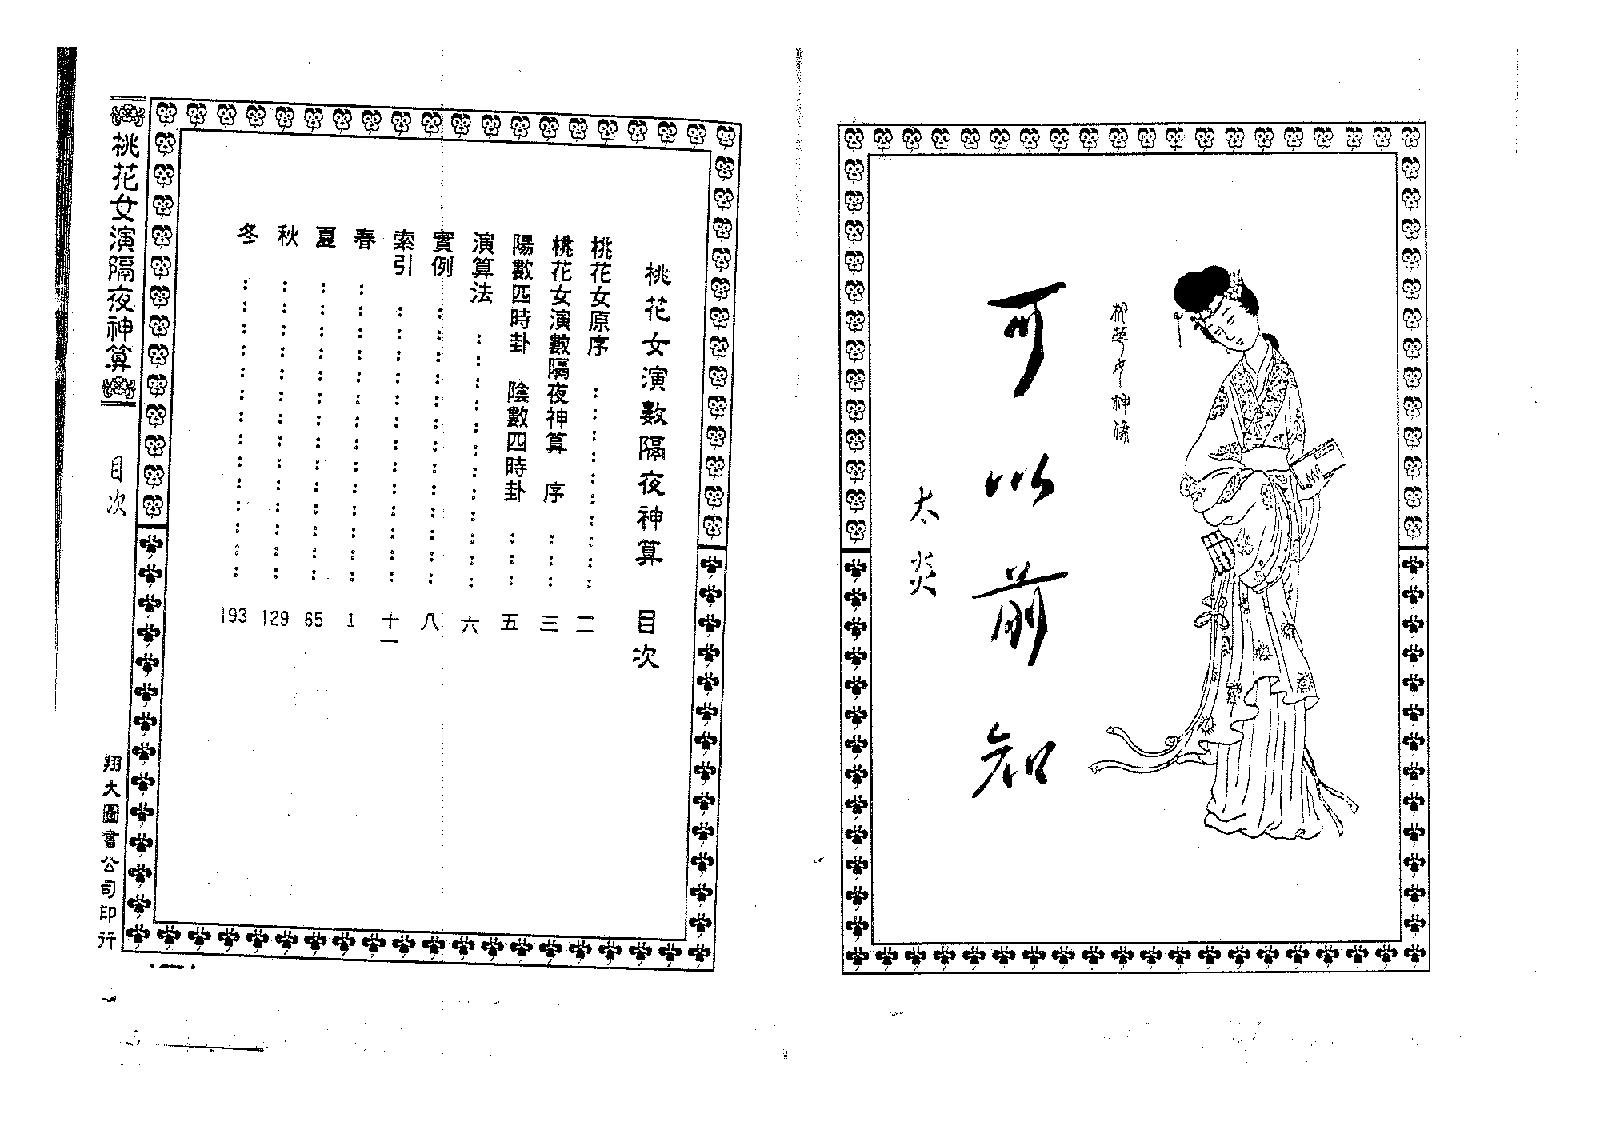 可以前知
太炎
桃花女演数隔夜神算 目次
桃花女原序 二
桃花女演數隔夜神算 序 三
陽數四時卦 陰數四時卦 五
演算法 六
實例 八
索引 十一
春 1
夏 65
秋 129
冬 193
桃花女演隔夜神算
目次
翔大圖書公司印行